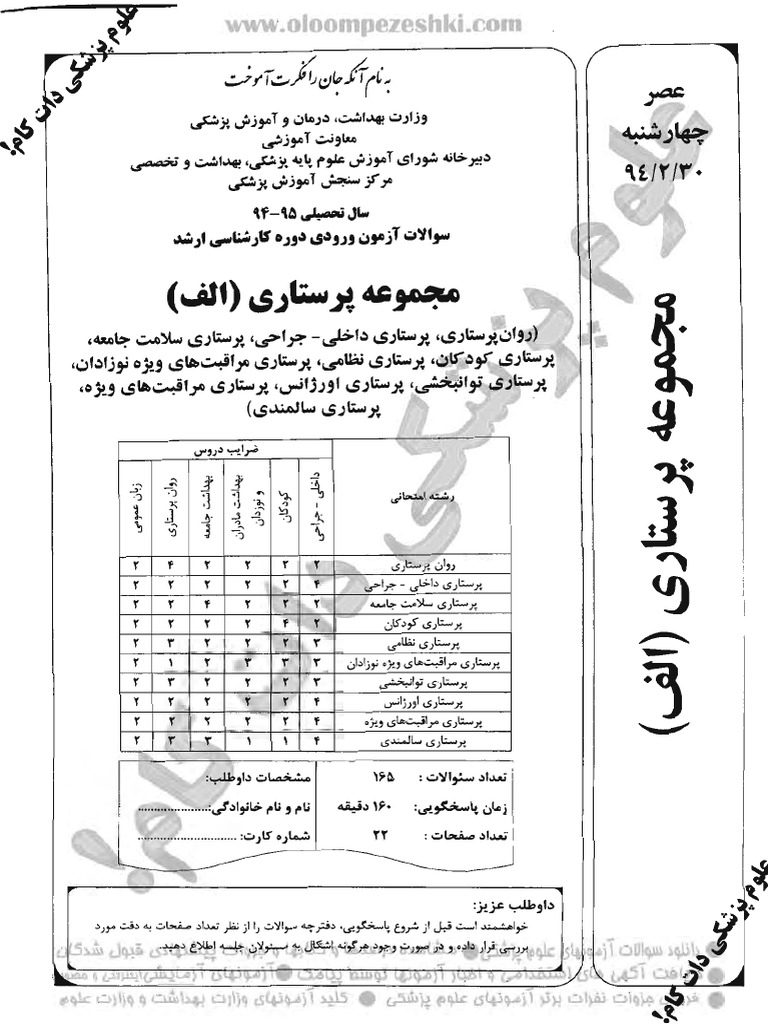 www.oloompezeshki.com
علوم پزشکی دات کام!
به نام آنکه جان را فکرت آموخت
وزارت بهداشت، درمان و آموزش پزشکی
معاونت آموزشی
دبیرخانه شورای آموزش علوم پایه پزشکی، بهداشت و تخصصی
مرکز سنجش آموزش پزشکی
سال تحصیلی ۹۵-۹۴
سوالات آزمون ورودی دوره کارشناسی ارشد
مجموعه پرستاری (الف)
(روان‌پرستاری، پرستاری داخلی- جراحی، پرستاری سلامت جامعه،
پرستاری کودکان، پرستاری نظامی، پرستاری مراقبت‌های ویژه نوزادان،
پرستاری توانبخشی، پرستاری اورژانس، پرستاری مراقبت‌های ویژه،
پرستاری سالمندی)
عصر
چهارشنبه
۹۴/۲/۳۰
مجموعه پرستاری (الف)
ضرایب دروس
رشته امتحانی داخلی - جراحی کودکان بهداشت مادران و نوزادان بهداشت جامعه روان پرستاری زبان عمومی
روان پرستاری ۲ ۲ ۲ ۲ ۴ ۲
پرستاری داخلی - جراحی ۴ ۲ ۲ ۲ ۲ ۲
پرستاری سلامت جامعه ۲ ۲ ۲ ۴ ۲ ۲
پرستاری کودکان ۲ ۴ ۲ ۲ ۲ ۲
پرستاری نظامی ۳ ۲ ۲ ۲ ۳ ۲
پرستاری مراقبت‌های ویژه نوزادان ۳ ۳ ۳ ۲ ۱ ۲
پرستاری توانبخشی ۳ ۲ ۲ ۲ ۳ ۲
پرستاری اورژانس ۴ ۲ ۲ ۲ ۲ ۲
پرستاری مراقبت‌های ویژه ۴ ۲ ۲ ۲ ۲ ۲
پرستاری سالمندی ۴ ۱ ۱ ۳ ۳ ۲
تعداد سئوالات : ۱۶۵ مشخصات داوطلب:
زمان پاسخگویی: ۱۶۰ دقیقه نام و نام خانوادگی:
تعداد صفحات : ۲۲ شماره کارت:
داوطلب عزیز:
خواهشمند است قبل از شروع پاسخگویی، دفترچه سوالات را از نظر تعداد صفحات به دقت مورد
بررسی قرار داده و در صورت وجود هرگونه اشکال به مسئولان جلسه اطلاع دهید.
علوم پزشکی دات کام!
علوم پزشکی دات کام!
دانلود سوالات آزمونهای علوم پزشکی
دریافت آگهی های استخدامی و اخبار آزمونها توسط پیامک آزمونهای آزمایشی اینترنتی و حضوری
فروش جزوات نفرات برتر آزمونهای علوم پزشکی کلید آزمونهای وزارت بهداشت و وزارت علوم